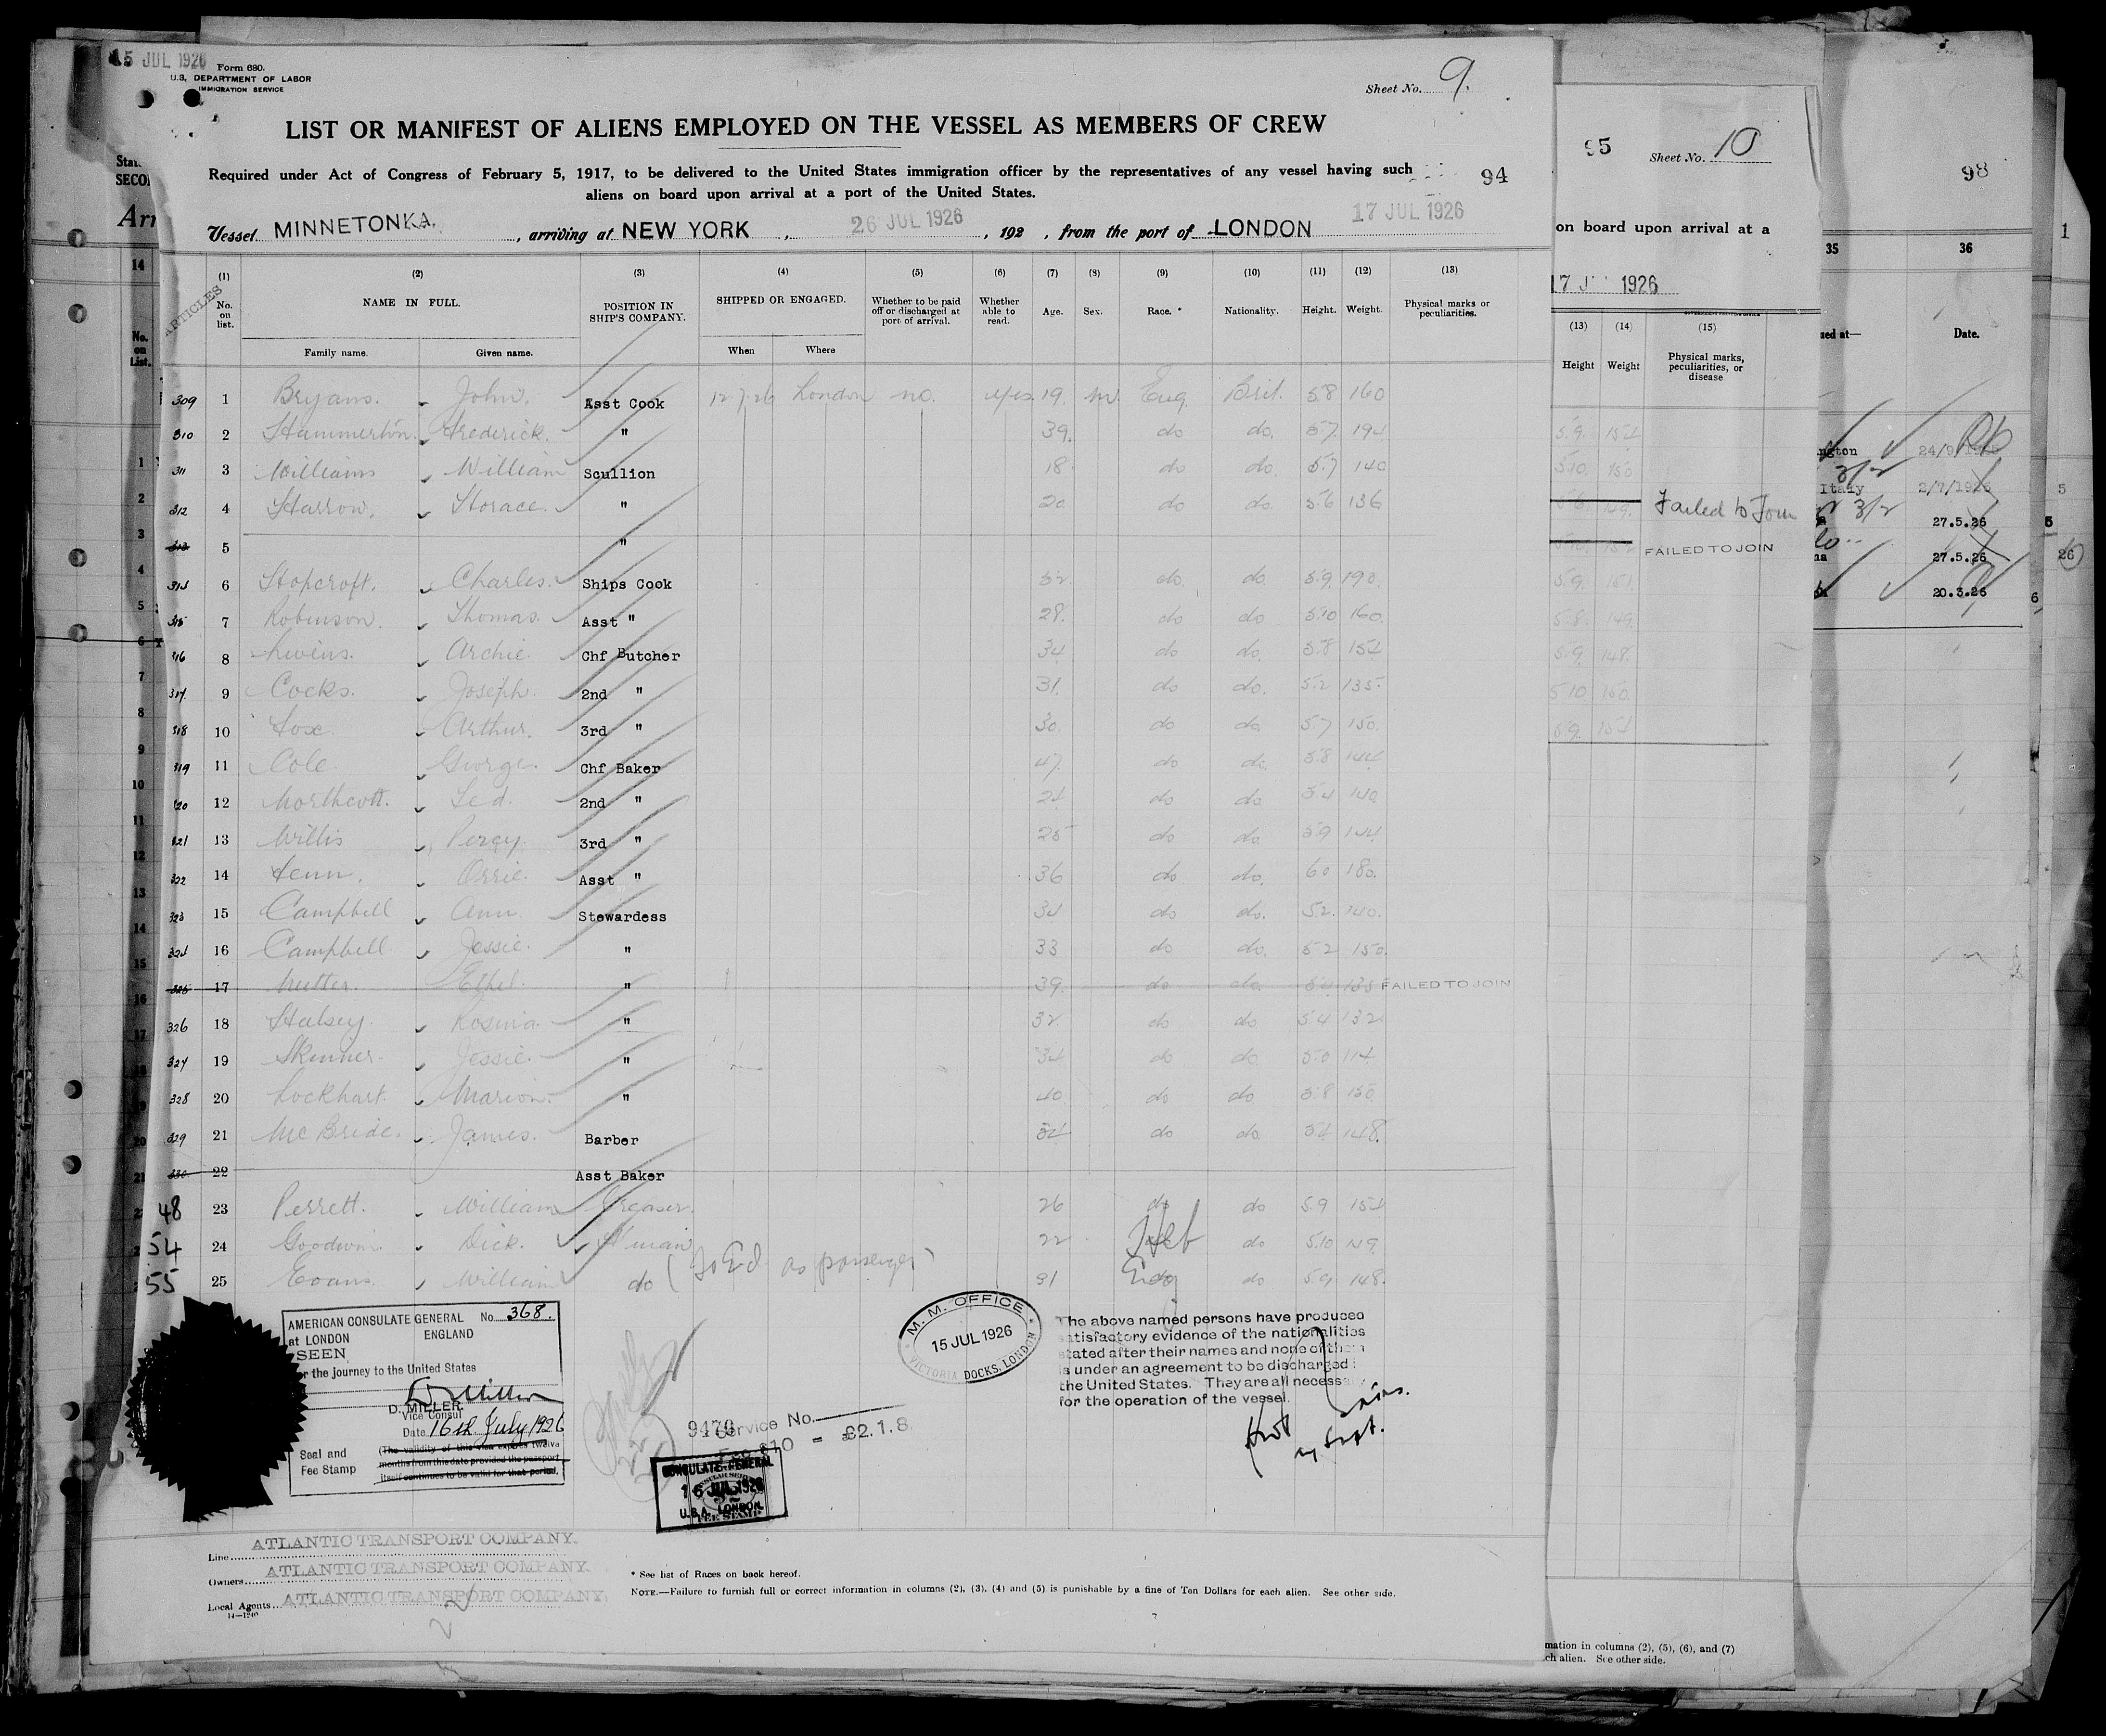 15 JUL 1926
Form 680.
U.S. DEPARTMENT OF LABOR
IMMIGRATION SERVICE
Sheet No. 9.
LIST OR MANIFEST OF ALIENS EMPLOYED ON THE VESSEL AS MEMBERS OF CREW
Required under Act of Congress of February 5, 1917, to be delivered to the United States immigration officer by the representatives of any vessel having such
aliens on board upon arrival at a port of the United States.
94
Vessel MINNETONKA, arriving at NEW YORK, 26 JUL 1926, 192 , from the port of LONDON 17 JUL 1926
ARTICLES
(1) (2) (3) (4) (5) (6) (7) (8) (9) (10) (11) (12) (13)
No. on list. NAME IN FULL. POSITION IN SHIP'S COMPANY. SHIPPED OR ENGAGED. Whether to be paid off or discharged at port of arrival. Whether able to read. Age. Sex. Race. * Nationality. Height. Weight. Physical marks or peculiarities.
Family name. Given name. When Where
309 1 Bryans. John. Asst Cook 12.7.26 London no. yes 19. m. Eng. Brit. 5.8 160
310 2 Hammerton. Frederick. " 39. do do. 5.7. 194
311 3 Williams William Scullion 18 do do. 5.7 140
312 4 Harrow. Horace. " 20 do do. 5.6 136
313 5 "
314 6 Hopcroft. Charles. Ships Cook 52 do. do. 5.9. 190.
315 7 Robinson. Thomas. Asst " 29. do do 5.10 160.
316 8 Livens. Archie. Chf Butcher 34 do do. 5.8 154
317 9 Cocks. Joseph. 2nd " 31. do do. 5.2 135.
318 10 Fox. Arthur. 3rd " 30. do do. 5.7 150.
319 11 Cole George. Chf Baker 47. do do. 5.8 144
320 12 Northcott. Led. 2nd " 24 do do 5.4 140
321 13 Willis Percy. 3rd " 25 do do. 5.9 144
322 14 Fenn. Orrie. Asst " 36 do do. 6.0 180.
323 15 Campbell Ann. Stewardess 34 do do. 5.2. 140.
324 16 Campbell Jessie. " 33 do do. 5.2 150.
325 17 Nutter. Ethel. " 39. do do. 5.4 135 FAILED TO JOIN
326 18 Halsey. Rosina. " 32 do do 5.4 132
327 19 Skinner. Jessie. " 34 do do 5.0 114
328 20 Lockhart. Marion. " 40 do do. 5.8 150.
329 21 McBride. James. Barber 34 do do. 5.4 148.
330 22 Asst Baker
48 23 Perrett. William Greaser. 26 do do 5.9 154
54 24 Goodwin. Dick. F'man 22 Heb do 5.10 149.
55 25 Evans. William do as passenger 31 Eng do 5.9 148.
AMERICAN CONSULATE GENERAL No. 368.
at LONDON ENGLAND
SEEN
or the journey to the United States
D. MILLER.
Vice Consul
Date 16th July 1926
(The validity of this visa expires twelve
months from this date provided the passport
itself continues to be valid for that period.
Seal and
Fee Stamp
M. M. OFFICE
15 JUL 1926
VICTORIA DOCKS, LONDON
The above named persons have produced
satisfactory evidence of the nationalities
stated after their names and none of them
is under an agreement to be discharged
the United States. They are all necess
for the operation of the vessel.
9470 Service No.
Fee $10 = £2.1.8
CONSULATE GENERAL
16 JUL 1926
U.S.A. LONDON.
FEE STAMP
Line ATLANTIC TRANSPORT COMPANY.
Owners ATLANTIC TRANSPORT COMPANY.
Local Agents ATLANTIC TRANSPORT COMPANY.
14—1240
* See list of Races on back hereof.
NOTE.—Failure to furnish full or correct information in columns (2), (3), (4) and (5) is punishable by a fine of Ten Dollars for each alien. See other side.
95 Sheet No. 10
on board upon arrival at a
1926
(13) (14) (15)
Height Weight Physical marks, peculiarities, or disease
5.9. 154
5.10. 150
Failed to Join
FAILED TO JOIN
5.9. 151
5.8. 149
5.9. 148.
5.10 160.
5.9. 154
mation in columns (2), (5), (6), and (7)
ch alien. See other side.
98
35 36
ned at— Date.
ngton 24/9/1926
Italy 2/7/1926
27.5.26
27.5.26
20.3.26
Stat
SECO
Arr
14
No. on List.